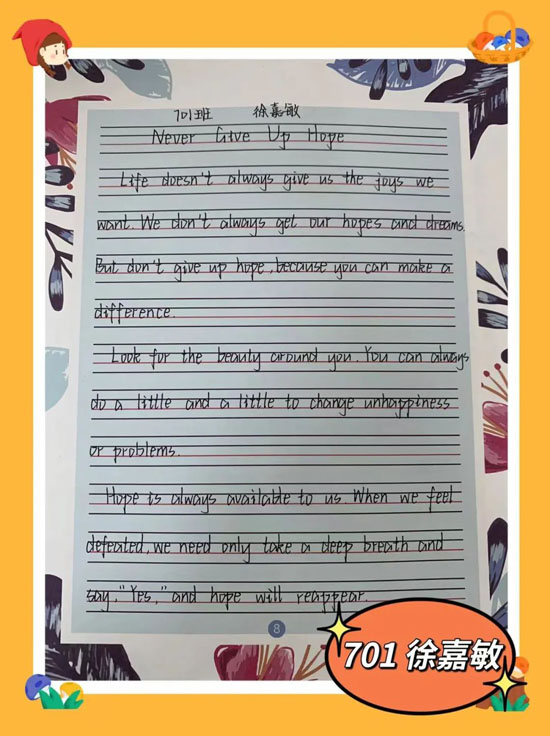 701班 徐嘉敏
Never Give Up Hope
Life doesn't always give us the joys we
want. We don't always get our hopes and dreams.
But don't give up hope, because you can make a
difference.
Look for the beauty around you. You can always
do a little and a little to change unhappiness
or problems.
Hope is always available to us. When we feel
defeated, we need only take a deep breath and
say, "Yes," and hope will reappear.
8
701 徐嘉敏